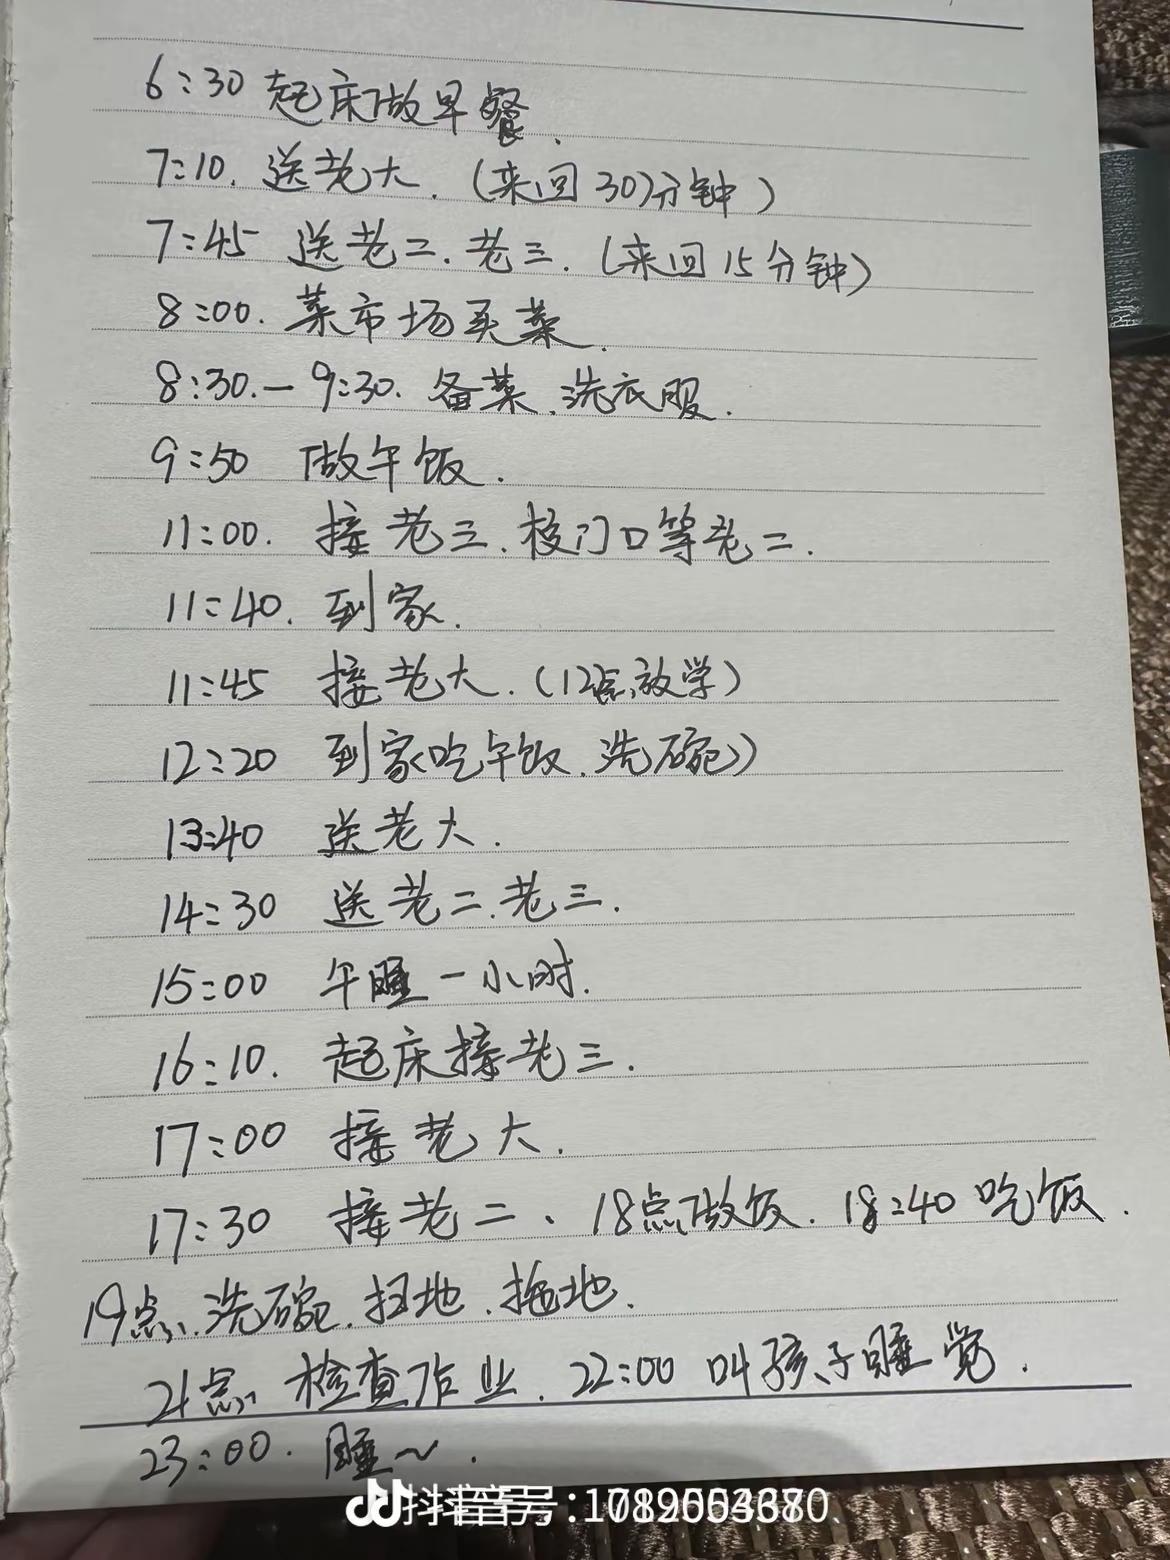 6:30 起床做早餐.
7:10. 送老大. (来回30分钟)
7:45 送老二.老三. (来回15分钟)
8:00. 菜市场买菜.
8:30.—9:30. 备菜.洗衣服.
9:50 做午饭.
11:00. 接老三.校门口等老二.
11:40. 到家.
11:45 接老大.(12点放学)
12:20 到家(吃午饭.洗碗)
13:40 送老大.
14:30 送老二.老三.
15:00 午睡一小时.
16:10. 起床接老三.
17:00 接老大.
17:30 接老二、18点做饭. 18:40 吃饭.
19点.洗碗.扫地.拖地.
21点 检查作业. 22:00 叫孩子睡觉.
23:00. 睡~.
抖音号: